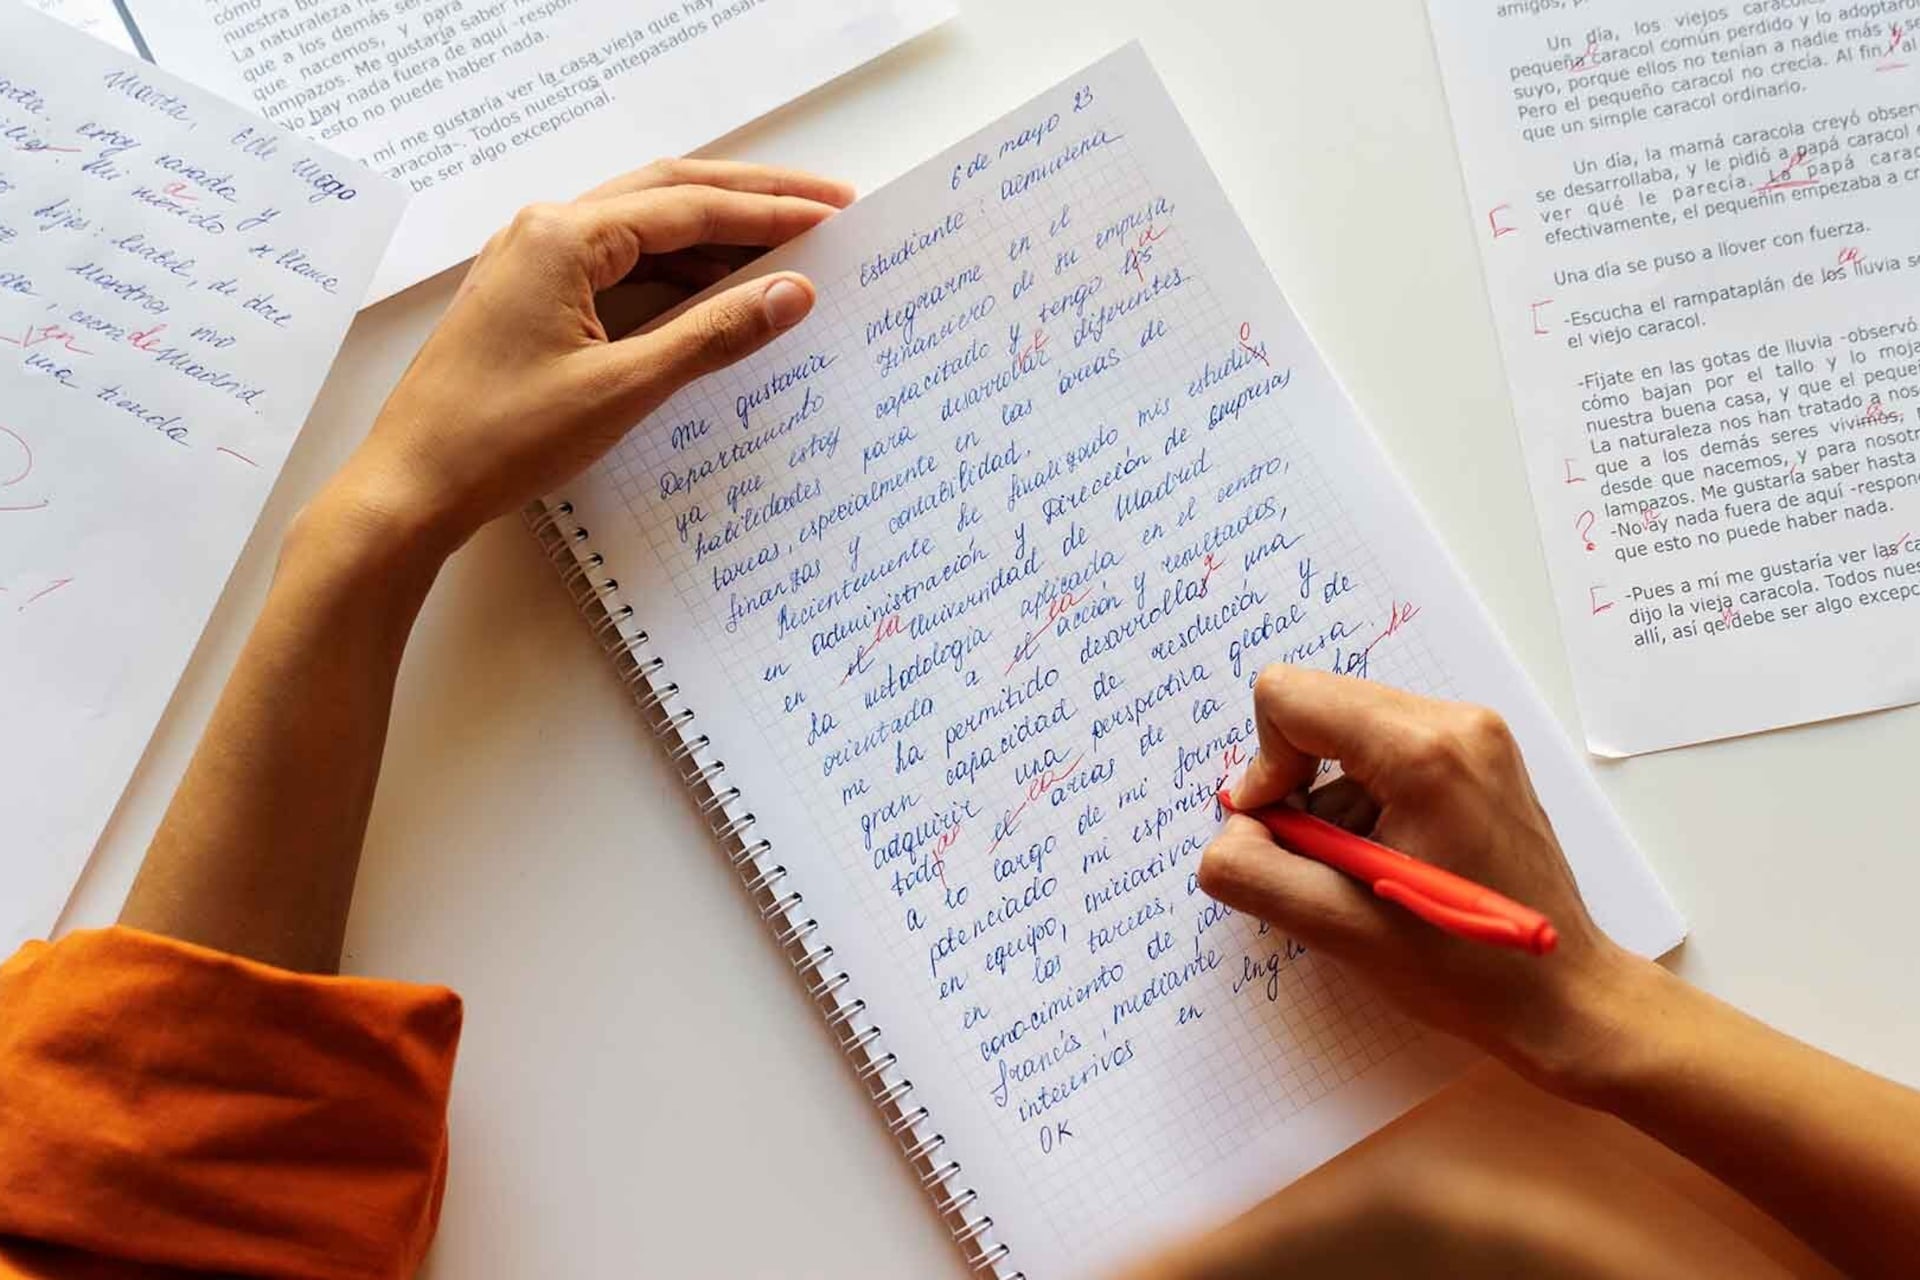 cómo
nuestra bu
La naturaleza n
que a los demás ser
que nacemos, y para
lampazos. Me gustaría saber
No hay nada fuera de aquí -respon
esto no puede haber nada.
a mí me gustaría ver la casa vieja que hay
caracola-. Todos nuestros antepasados pasaro
be ser algo excepcional.
Marta, 6 de mayo
estoy casada y
Mi marido se llama
hijos: Isabel, de doce
nosotros, vivo
cerca de Madrid.
en
una tienda
6 de mayo 23
Estudiante: Almudena
Me gustaría integrarme en el
Departamento Financiero de su empresa,
ya que estoy capacitado y tengo los
a
habilidades para desarrollar diferentes
tareas, especialmente en las áreas de
finanzas y contabilidad.
Recientemente he finalizado mis estudius
o
en administración y Dirección de Empresas
en el Universidad de Madrid
la
La metodología aplicada en el centro,
orientada a el acción y resultados,
la
me ha permitido desarrollas una
r
gran capacidad de resolución y
adquirir una perspectiva global de
todo el areas de la empresa.
as la
a lo largo de mi formac hay
he
potenciado mi espiritu
en equipo, iniciativa
en las tareas, a
conocimiento de idi
francés, mediante
intensivos en Inglé
OK
amigos, p
Un día, los viejos caracoles
pequeña caracol común perdido y lo adoptaro
suyo, porque ellos no tenían a nadie más y se
Pero el pequeño caracol no crecía. Al fin, y al
que un simple caracol ordinario.
Un día, la mamá caracola creyó obser
se desarrollaba, y le pidió a papá caracol
ver qué le parecía. La papá carac
efectivamente, el pequeñín empezaba a cr
Una día se puso a llover con fuerza.
-Escucha el rampataplán de los lluvia so
la
el viejo caracol.
-Fíjate en las gotas de lluvia -observó
cómo bajan por el tallo y lo moja
nuestra buena casa, y que el peque
La naturaleza nos han tratado a nos
que a los demás seres vivimos,
desde que nacemos, y para nosotr
lampazos. Me gustaría saber hasta
? -No ay nada fuera de aquí -respon
que esto no puede haber nada.
-Pues a mí me gustaría ver las ca
dijo la vieja caracola. Todos nues
allí, así qe debe ser algo excepc